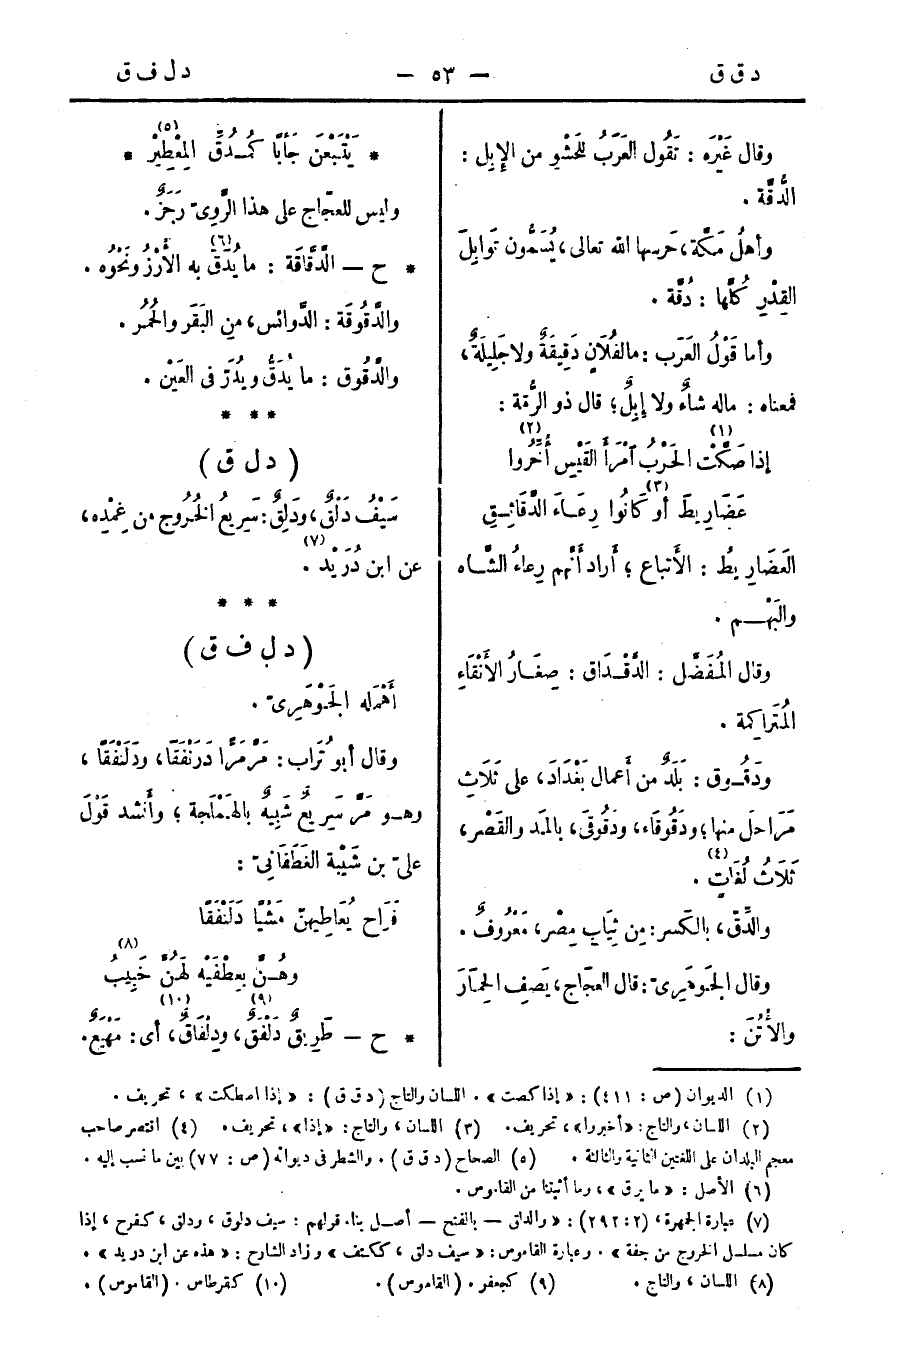 د ق ق
— ٥٣ —
د ل ف ق
وقال غَيْرُه : تَقُول العَرَبُ لِلحَشْوِ من الإبِل :
الدُّقَّة .
وأهلُ مَكَّة، حَرسها الله تعالى، يُسَمُّون تَوابِلَ
القِدْرِ كُلَّها : دُقَّة .
وأما قَوْلُ العَرَب : مالفُلَانٍ دَقِيقَةٌ ولا جَلِيلَةٌ،
فمعناه : ماله شاءٌ ولا إبِلٌ؛ قال ذو الرُّمّة :
إذا صَكَّت الحَرْبُ امْرَأَ القَيْسِ أُخِّرُوا (١) (٢)
عَضَارِيطَ أو كَانُوا رِعَاءَ الدَّقَائِقِ (٣)
العَضَارِيطُ : الأَتباع ؛ أراد أَنَّهم رِعاءُ الشَّاه
والبَهْم .
وقال المُفَضَّل : الدَّقْدَاق : صِغَارُ الأَنْقَاءِ
المُتَراكِمة .
ودَقُوق : بَلَدٌ من أعمال بَغْدَادَ، على ثَلَاثِ
مَرَاحِلَ منها؛ ودَقُوقَاء، ودَقُوقَى، بالمد والقَصْر،
ثَلَاثُ لُغَاتٍ . (٤)
والدِّقّ، بالكَسر: مِن ثِيَابِ مِصْرَ، مَعْرُوفٌ .
وقال الجَوْهَرِيّ: قال العجّاج، يَصِف الحِمَارَ
والأُتُنَ :
* يَتْبَعْنَ جَأْبًا كَمُدُقِّ المِعْطِيْرِ * (٥)
وليس للعجّاج على هذا الرَّوِيّ رَجَزٌ .
* ح — الدَّقَّاقَة : ما يُدَقّ به الأَرُزّ ونَحْوُه . (٦)
والدَّقُوقَة : الدَّوائس، من البَقَر والحُمُر .
والدَّقُوق : ما يُدَقُّ ويُذَرّ فى العَيْن .
* * *
( د ل ق )
سَيْفٌ دَلْقٌ، ودَلِقٌ : سَرِيعُ الخُروجِ من غِمْدِه،
عن ابن دُرَيْد . (٧)
* * *
( د ل ف ق )
أَهْمَله الجَوْهَرِيّ .
وقال أبو تُراب : مَرَّ مَرًّا دَرَنْفَقًا، ودَلَنْفَقًا ،
وهو مَرٌّ سَرِيعٌ شَبِيهٌ بالهَمْلجة ؛ وأَنشد قَوْلَ
علىّ بن شَيْبة الغَطَفَانىّ :
فَرَاح يُعَاطِيهنّ مَشْيًا دَلَنْفَقًا
وهُنَّ بِعِطْفَيْه لَهُنّ خَبِيبُ (٨)
* ح — طَرِيقٌ دَلْفَقٌ، ودِلْفَاقٌ، أى: مَهْيَعٌ . (٩) (١٠)
(١) الديوان (ص : ٤١١) : « إذا كصت » . اللسان والتاج (د ق ق) : « إذا اصطكت » ، تحريف .
(٢) اللسان، والتاج: «أخبروا»، تحريف. (٣) اللسان، والتاج: «إذا»، تحريف. (٤) اقتصر صاحب
معجم البلدان على اللغتين الثانية والثالثة . (٥) الصحاح (د ق ق) . والشطر فى ديوانه (ص : ٧٧) بين ما نسب إليه .
(٦) الأصل : « ما يرق » ، وما أثبتنا من القاموس .
(٧) عبارة الجمهرة، (٢ : ٢٩٢) : « والدلق — بالفتح — أصل بناء قولهم : سيف دلوق ، ودلق ، كفرح ، إذا
كان مسلسل الخروج من جفنه » . وعبارة القاموس : « سيف دلق ، ككتف » وزاد الشارح : « هذه عن ابن دريد » .
(٨) اللسان ، والتاج . (٩) كجعفر . (القاموس) . (١٠) كقرطاس . (القاموس) .